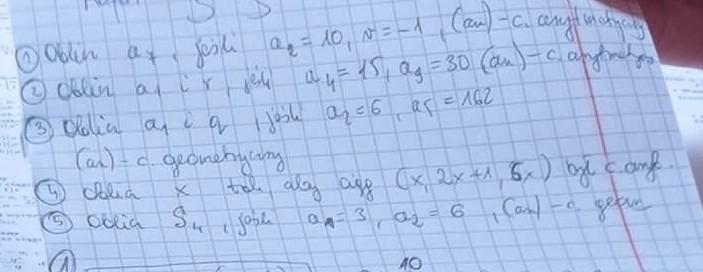 ① Oblicz a₇, jeśli a₂ = 10, r = -1, (an) - c. arytmetyczny
② Oblicz a₁ i r, jeśli a₄ = 15, a₉ = 30 (an) - c. arytmetyczny
③ Oblicz a₁ i q, jeśli a₂ = 6, a₅ = 162
(an) - c. geometryczny
④ Oblicz x tak, aby ciąg (x, 2x+1, 5x) był c. aryt.
⑤ Oblicz S₄, jeśli a₁ = 3, a₂ = 6, (an) - c. geom
①
10